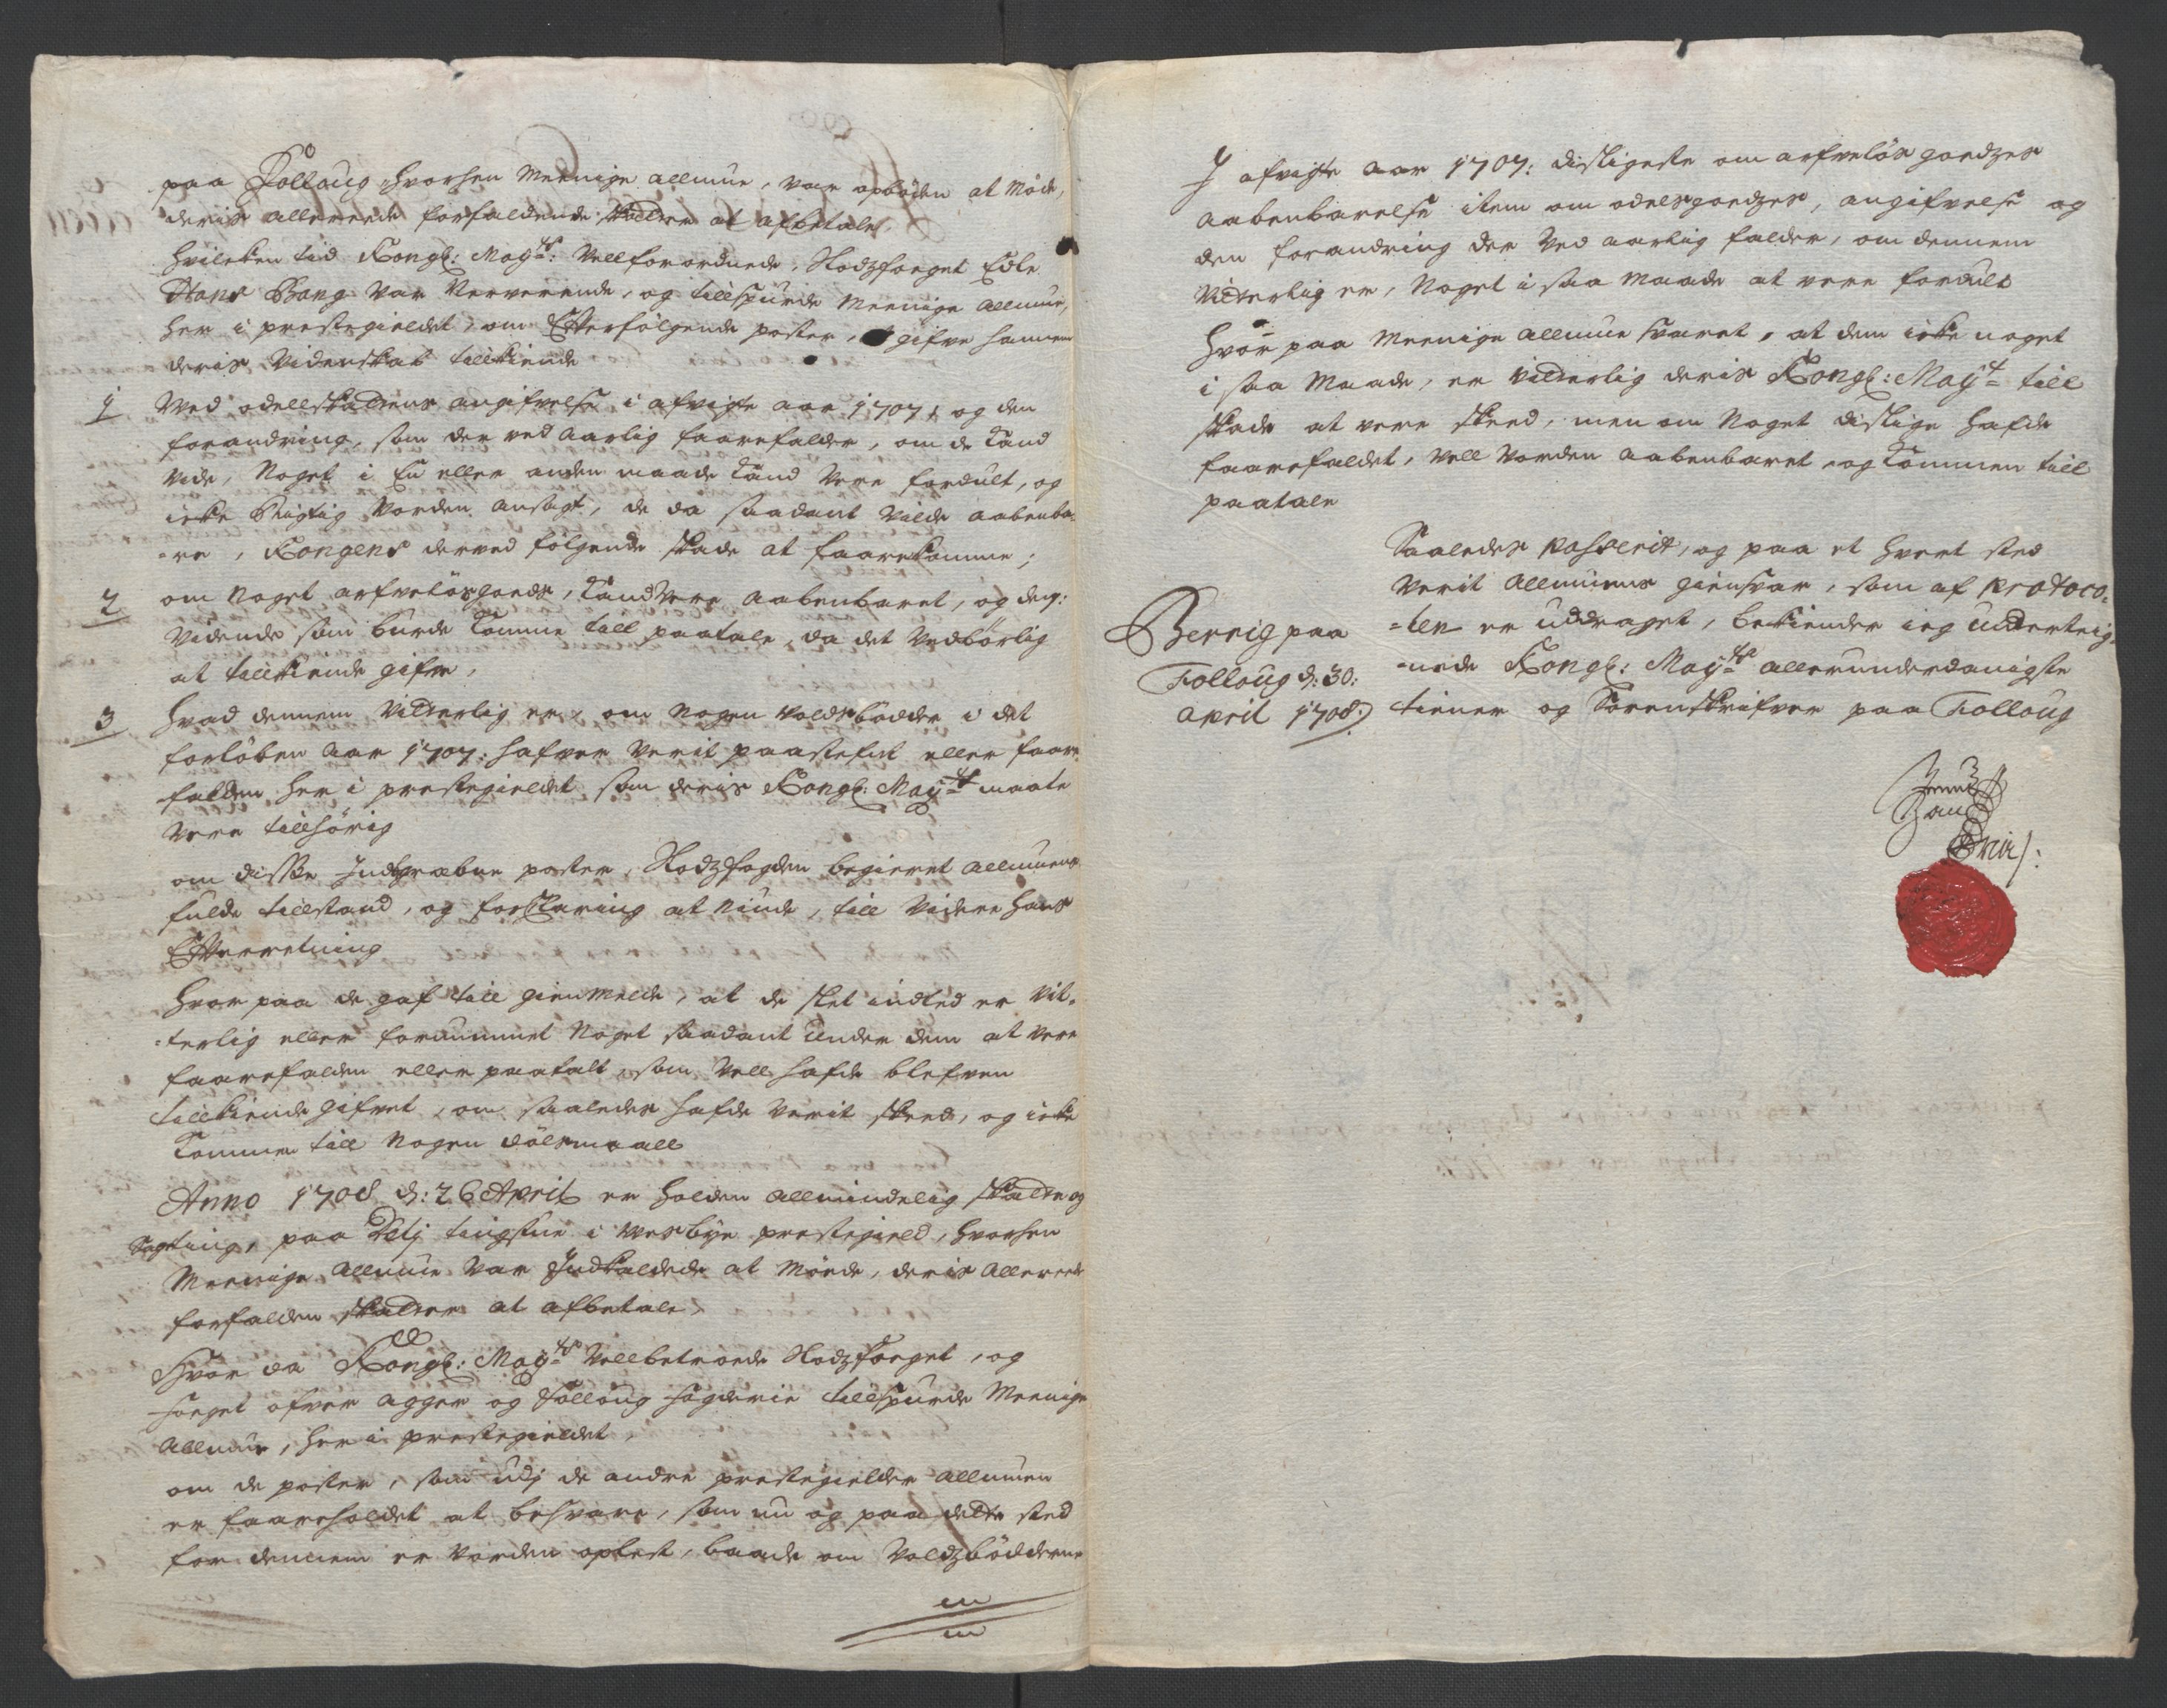 paa Folloug hvorhen Meenige allmue, var opböden at Möde,
deris allereede forfaldende skatter at afbetale,
Hvilcken tid Kongl: Mayts: Vellforordnede, Slodzfoeget Edle
Hans Bang var Nerverende, og tillspurde Meenige Allmue,
her i prestegieldet, om Efterfölgende poster, at gifve hannem
deris Videnskab tillkiende
1 Ved odellskattens angifvelse i afvigte aar 1707, og den
forandring, som der ved Aarlig faarefalder, om de Kand
vide, Noget i En eller anden maade Kand Vere fordult, og
icke Rigtig Vorden ansagt, de da saadant Vilde aabenba-
-re, Kongens derved fölgende skade at faarekomme;
2 om Noget arfvelösgoeds, Kand Vere Aabenbaret, og deris
Vidende som burde Komme till paatale, da det Vedbörlig
at tillkiende gifve,
3 Hvad dennem Vitterlig er, om Nogen Voldsbödder i det
forlöben Aar 1707: hafver Verit paastefnt eller faare
falden her i prestegieldet som deris Kongl: Mayts maate
Vere tillhörig
om disse Indgrebne poster, Slodzfogden begieret Allmuens
fulde tillstand, og forklaring at Niude, till Videre hans
Efterretning
Hvor paa de gaf till gienmelde, at de slet indted er Vit-
-terlig eller fornummet Noget saadant Under dem at Vere
faarefalden eller paatalt, som Vell hafde blefven
tillkiende gifvet, om saaledes hafde Verit skeed, og icke
Kommen till Nogen dölsmaall
Anno 1708 d: 26 April er holden Allmindelig skatte og
Sageting, paa tingstue i Wesbye prestegield, hvorhen
Meenige Allmue Var Indkaldede at Möede, deris Allereede
forfalden skatter at afbetale,
Hvor da Kongl: Mayts Vellbetroede Slodzfoeget, og
foeget ofver Agger og Folloug fogderie tillspurde Meenige
Allmue, her i prestegieldet,
om de poster, som udj de andre prestegielder Allmuen
er faareholdet at besvare, som nu og paa dette sted
for dennem er Vorden oplest, baade om Voldzbödderne
I afvigte Aar 1707: disligeste om arfvelös goedzes
aabenbarelse item om odelsgoedzes, angifvelse og
den forandring der Ved aarlig falder, om dennem
Vitterlig er, Noget i saa Maade at vere fordult
Hvor paa Meenige Allmue svaret, at dem icke noget
i saa Maade, er Vitterlig deris Kongl: Mayt till
skade at vere skeed, men om Noget dislige hafde
faarefaldet, Vell Vorden aabenbaret, og Kommen till
paatale
Saaledes passerit, og paa et hvert sted
Verit Allmuens giensvar, som af protoco-
-llen er uddraget, bekiender ieg Underteig-
-nede Kongl: Mayts allerunderdanigste
tiener og Sorenskrifver paa Folloug
Berrig paa
Folloug d: 30:
April 1708: